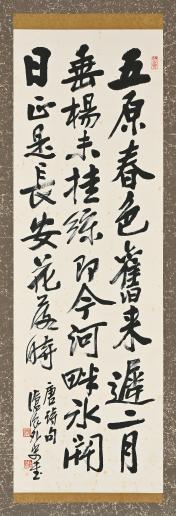 五原春色舊來遲二月
垂楊未挂絲即今河畔冰開
日正是長安花落時
唐詩句